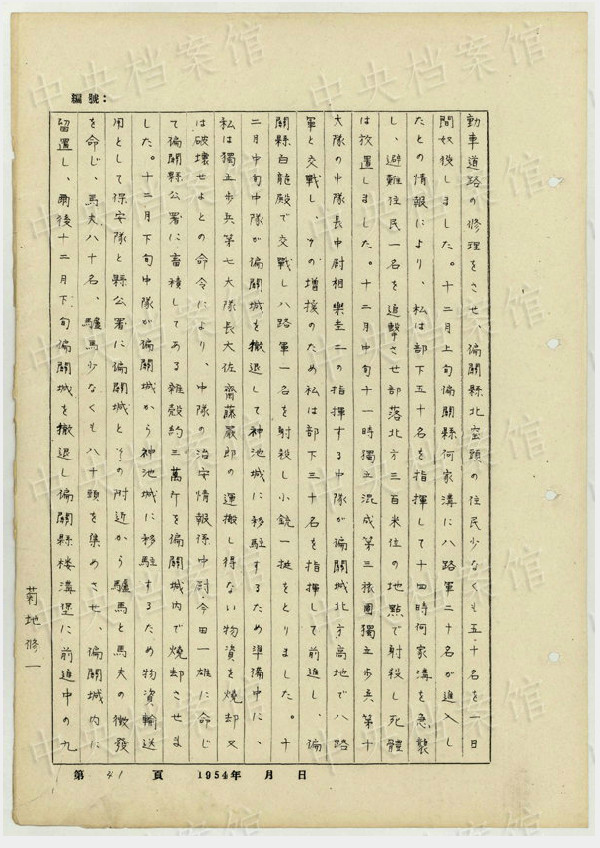 編號：
動車道路の修理をさせ、偏關縣北堡頭の住民少なくも五十名を一日
間奴役しました。十二月上旬偏關縣何家溝に八路軍二十名が進入し
たとの情報により、私は部下五十名を指揮して十四時何家溝を急襲
し、避難住民一名を追撃させ部落北方三百米位の地點で射殺し死體
は放置しました。十二月中旬十一時獨立混成第三旅團獨立步兵第十
大隊の中隊長中尉相樂圭二の指揮する中隊が偏關城北方高地で八路
軍と交戰し、その増援のため私は部下三十名を指揮して前進し、偏
關縣白龍殿で交戰し八路軍一名を射殺し小銃一挺をとりました。十
二月中旬中隊が偏關城を撤退して神池城に移駐するため準備中に、
私は獨立步兵第七大隊長大佐齋藤嚴郎の運搬し得ない物資を燒却又
は破壞せよとの命令により、中隊の治安情報係中尉今田一雄に命じ
て偏關縣公署に畜積してある雜穀約三萬斤を偏關城内で燒却させま
した。十二月下旬中隊が偏關城から神池城に移駐するため物資輸送
用として保安隊と縣公署に偏關城とその附近から驢馬と馬夫の徵發
を命じ、馬夫八十名、驢馬少なくも八十頭を集めさせ、偏關城内に
留置し、爾後十二月下旬偏關城を撤退し偏關縣樓溝堡に前進中の九
菊地修一
第 41 頁 1954年 月 日
中央档案馆